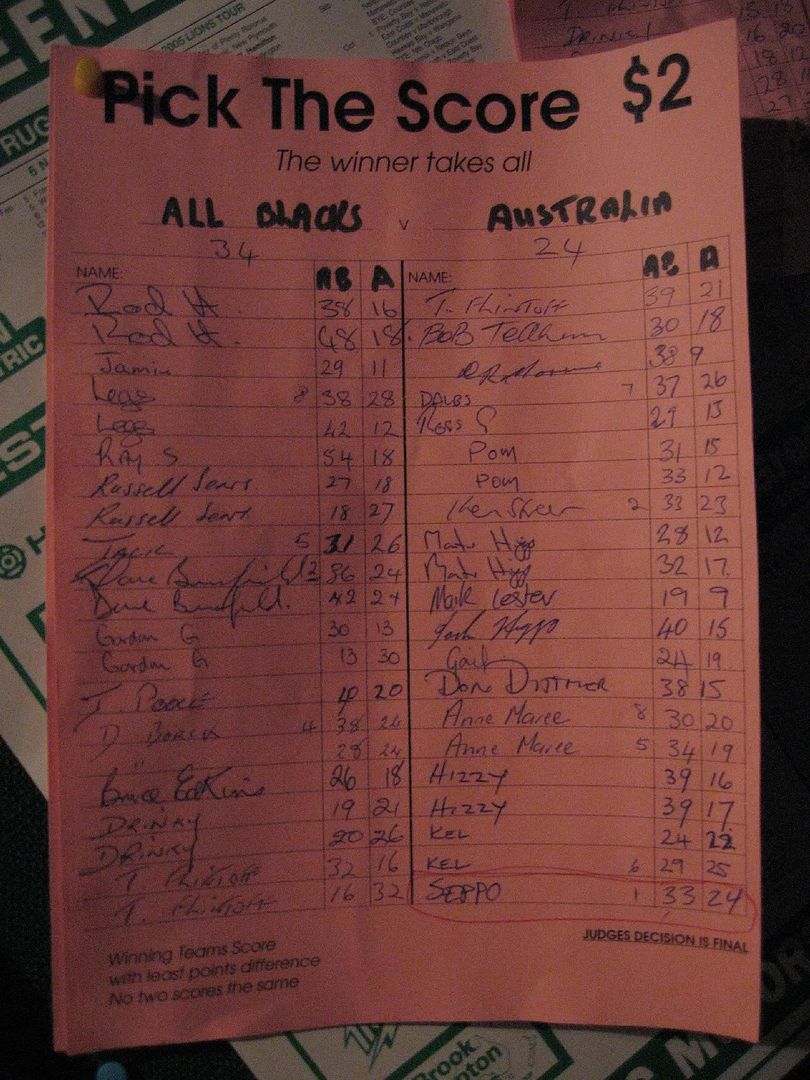 2005 LIONS TOUR
Pick The Score $2
The winner takes all
ALL BLACKS v AUSTRALIA
34 24
NAME: AB A NAME: AB A
Rod H. 38 16 T. Flintoff 39 21
Rod H. 48 18 BOB 30 18
Jamie 29 11 38 9
Legs 8 38 28 DALBS 7 37 26
Legs 42 12 Ross G 29 13
RAY S 54 18 Pom 31 15
Russell Sears 27 18 Pom 33 12
Russell Sears 18 27 Ken 2 33 23
Jack 5 31 26 Mark Higgs 28 12
Dave Bumfield 3 36 24 Mark Higgs 32 17
Dave Bumfield. 42 24 Mark Lester 19 9
Gordon G 30 13 Josh Higgs 40 15
Gordon G 13 30 Gail 24 19
T. POOLE 20 Don DITTMER 38 15
D 4 38 24 Anne Maree 8 30 20
" 28 24 Anne Maree 5 34 19
Bruce Eakins 26 18 HIZZY 39 16
DRINKY 19 21 HIZZY 39 17
DRINKY 20 26 KEL 24 22
T. Flintoff 32 16 KEL 6 29 25
T. Flintoff 16 32 SEPPO 1 33 24
JUDGES DECISION IS FINAL
Winning Teams Score
with least points difference
No two scores the same